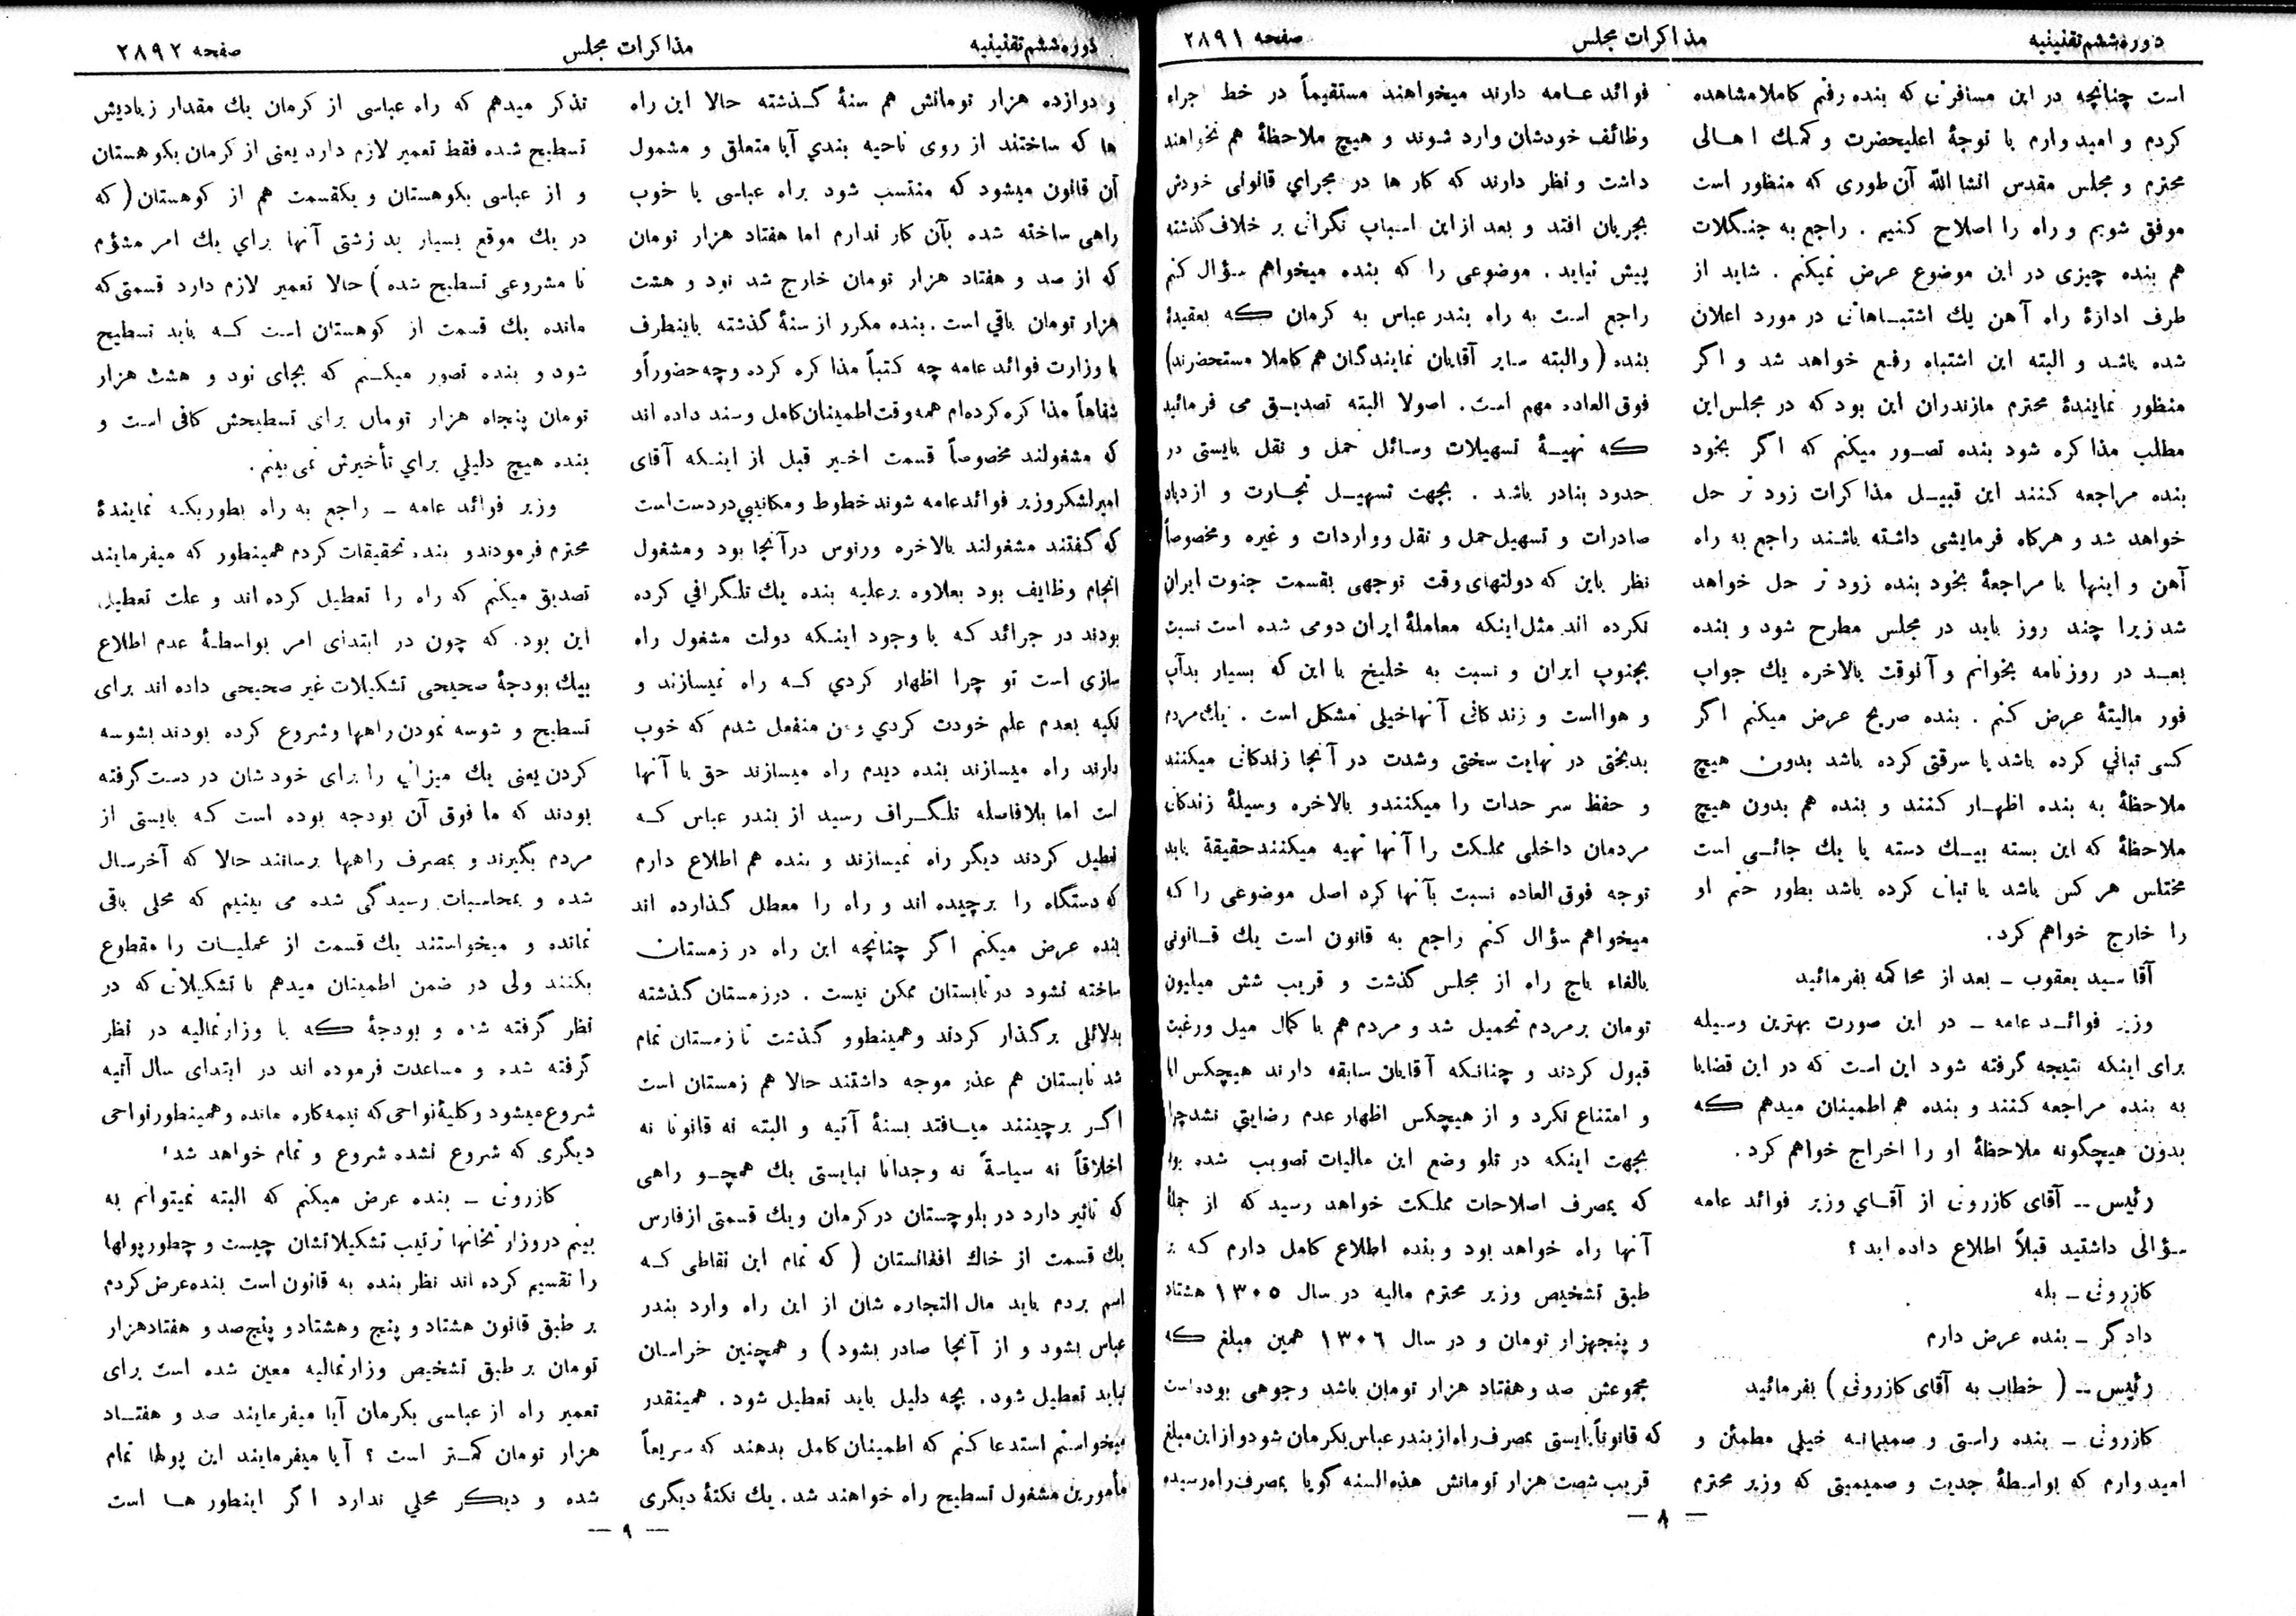 دوره ششم تقنینیه
مذاکرات مجلس
صفحه ۲۸۹۱
است چنانچه در این مسافرتی که بنده رفتم کاملا مشاهده
کردم و امیدوارم با توجهٔ اعلیحضرت و کمک اهالی
محترم و مجلس مقدس انشاالله آن طوری که منظور است
موفق شویم و راه را اصلاح کنیم . راجع به جنگلات
هم بنده چیزی در این موضوع عرض نمیکنم . شاید از
طرف ادارهٔ راه آهن یك اشتباهاتی در مورد اعلان
شده باشد و البته این اشتباه رفع خواهد شد و اگر
منظور نمایندهٔ محترم مازندران این بود که در مجلس این
مطلب مذاکره شود بنده تصور میکنم که اگر بخود
بنده مراجعه کنند این قبیل مذاکرات زود تر حل
خواهد شد و هرکاه فرمایشی داشته باشند راجع به راه
آهن و اینها با مراجعهٔ بخود بنده زود تر حل خواهد
شد زیرا چند روز باید در مجلس مطرح شود و بنده
بعد در روزنامه بخوانم و آنوقت بالاخره یك جواب
فورمالیتهٔ عرض کنم . بنده صریح عرض میکنم اگر
کسی تبانی کرده باشد یا سرقتی کرده باشد بدون هیچ
ملاحظهٔ به بنده اظهار کنند و بنده هم بدون هیچ
ملاحظهٔ که این بسته بیك دسته یا یك جائی است
مختلس هر کس باشد یا تبانی کرده باشد بطور حتم او
را خارج خواهم کرد.
آقا سید یعقوب ـ بعد از محاکمه بفرمائید
وزیر فوائد عامه ـ در این صورت بهترین وسیله
برای اینکه نتیجه گرفته شود این است که در این قضایا
به بنده مراجعه کنند و بنده هم اطمینان میدهم که
بدون هیچگونه ملاحظهٔ او را اخراج خواهم کرد .
رئیس ـ آقای کازرونی از آقای وزیر فوائد عامه
سؤالی داشتید قبلاً اطلاع داده اید ؟
کازرونی ـ بله
دادگر ـ بنده عرض دارم
رئیس ـ ( خطاب به آقای کازرونی ) بفرمائید
کازرونی ـ بنده راستی و صمیمانه خیلی مطمئن و
امیدوارم که بواسطهٔ جدیت و صمیمیتی که وزیر محترم
فوائد عامه دارند میخواهند مستقیماً در خط اجراء
وظائف خودشان وارد شوند و هیچ ملاحظهٔ هم نخواهند
داشت و نظر دارند که کار ها در مجرای قانونی خودش
بجریان افتد و بعد از این اسباب نگرانی بر خلاف گذشته
پیش نیاید . موضوعی را که بنده میخواهم سؤال کنم
راجع است به راه بندر عباس به کرمان که بعقیدهٔ
بنده ( والبته سایر آقایان نمایندگان هم کاملا مستحضرند)
فوق العاده مهم است. اصولا البته تصدیق می فرمائید
که تهیهٔ تسهیلات وسائل حمل و نقل بایستی در
حدود بنادر باشد . بجهت تسهیل تجارت و ازدیاد
صادرات و تسهیل حمل و نقل وواردات و غیره و مخصوصاً
نظر باین که دولتهای وقت توجهی بقسمت جنوت ایران
نکرده اند مثل اینکه معاملهٔ ایران دومی شده است نسبت
بجنوب ایران و نسبت به خلیخ با این که بسیار بدآب
و هوااست و زندکانی آنهاخیلی مشکل است . یك مردم
بدبختی در نهایت سختی وشدت در آنجا زندکانی میکنند
و حفظ سر حدات را میکنندو بالاخره وسیلهٔ زندکانی
مردمان داخلی مملکت را آنها تهیه میکنند حقیقة باید
توجه فوق العاده نسبت بآنها کرد اصل موضوعی را که
میخواهم سؤال کنم راجع به قانون است یك قانونی
بالغاء باج راه از مجلس گذشت و قریب شش میلیون
تومان بر مردم تحمیل شد و مردم هم با کمال میل ورغبت
قبول کردند و چنانکه آقایان سابقه دارند هیچکس ابا
و امتناع نکرد و از هیچکس اظهار عدم رضایتی نشد چرا
بجهت اینکه در تلو وضع این مالیات تصویب شده بود
که بمصرف اصلاحات مملکت خواهد رسید که از جملهٔ
آنها راه خواهد بود و بنده اطلاع کامل دارم که بر
طبق تشخیص وزیر محترم مالیه در سال ۱۳۰۵ هشتاد
و پنجهزار تومان و در سال ۱۳۰٦ همین مبلغ که
مجموعش صد و هفتاد هزار تومان باشد وجوهی بوده است
که قانوناً بایستی بمصرف راه از بندر عباس بکرمان شود و از این مبلغ
قریب شصت هزار تومانش هذه السنه گویا بمصرف راه رسیده
— ۸ —
دوره ششم تقنینیه
مذاکرات مجلس
صفحه ۲۸۹۲
و دوازده هزار تومانش هم سنهٔ گذشته حالا این راه
ها که ساختند از روی ناحیه بندی آیا متعلق و مشمول
آن قانون میشود که منتسب شود براه عباسی یا خوب
راهی ساخته شده بآن کار ندارم اما هفتاد هزار تومان
که از صد و هفتاد هزار تومان خارج شد نود و هشت
هزار تومان باقی است . بنده مکرر از سنهٔ گذشته باینطرف
با وزارت فوائد عامه چه کتباً مذاکره کرده و چه حضوراً و
شفاهاً مذاکره کرده ام همه وقت اطمینان کامل و سند داده اند
که مشغولند مخصوصاً قسمت اخیر قبل از اینکه آقای
امیر لشکر وزیر فوائد عامه شوند خطوط و مکاتیبی در دست است
که گفتند مشغولند بالاخره ورنوس در آنجا بود و مشغول
انجام وظایف بود بعلاوه بر علیه بنده یك تلگرافی کرده
بودند در جرائد که با وجود اینکه دولت مشغول راه
سازی است تو چرا اظهار کردی که راه نمیسازند و
تکیه بعدم علم خودت کردی و من منفعل شدم که خوب
دارند راه میسازند بنده دیدم راه میسازند حق با آنها
است اما بلافاصله تلگراف رسید از بندر عباس که
تعطیل کردند دیگر راه نمیسازند و بنده هم اطلاع دارم
که دستگاه را برچیده اند و راه را معطل گذارده اند
بنده عرض میکنم اگر چنانچه این راه در زمستان
ساخته نشود در تابستان ممکن نیست . در زمستان گذشته
بدلائلی برگذار کردند و همینطوو گذشت تا زمستان تمام
شد تابستان هم عذر موجه داشتند حالا هم زمستان است
اگر برچینند میافتد بسنهٔ آتیه و البته نه قانونا نه
اخلاقاً نه سیاسةً نه وجدانا نبایستی یك همچو راهی
که تاثیر دارد در بلوچستان در کرمان و یك قسمتی از فارس
یك قسمت از خاك افغانستان ( که تمام این نقاطی که
اسم بردم باید مال التجاره شان از این راه وارد بندر
عباس بشود و از آنجا صادر بشود ) و همچنین خراسان
نباید تعطیل شود. بچه دلیل باید تعطیل شود . همینقدر
میخواستم استدعا کنم که اطمینان کامل بدهند که سریعاً
مأمورین مشغول تسطیح راه خواهند شد. یك نکتهٔ دیگری
تذکر میدهم که راه عباسی از کرمان یك مقدار زیادیش
تسطیح شده فقط تعمیر لازم دارد یعنی از کرمان بکوهستان
و از عباسی بکوهستان و یکقسمت هم از کوهستان ( که
در یك موقع بسیار بد زشتی آنها برای یك امر مشؤم
نا مشروعی تسطیح شده ) حالا تعمیر لازم دارد قسمتی که
مانده یك قسمت از کوهستان است که باید تسطیح
شود و بنده تصور میکنم که بجای نود و هشت هزار
تومان پنجاه هزار تومان برای تسطیحش کافی است و
بنده هیچ دلیلی برای تأخیرش نمی بینم .
وزیر فوائد عامه ـ راجع به راه بطوریکه نمایندهٔ
محترم فرمودندو بنده تحقیقات کردم همینطور که میفرمایند
تصدیق میکنم که راه را تعطیل کرده اند و علت تعطیل
این بود. که چون در ابتدای امر بواسطهٔ عدم اطلاع
بیك بودجهٔ صحیحی تشکیلات غیر صحیحی داده اند برای
تسطیح و شوسه نمودن راهها و شروع کرده بودند بشوسه
کردن یعنی یك میزانی را برای خودشان در دست گرفته
بودند که ما فوق آن بودجه بوده است که بایستی از
مردم بگیرند و بمصرف راهها برسانند حالا که آخر سال
شده و بمحاسبات رسیدگی شده می بینیم که محلی باقی
نمانده و میخواستند یك قسمت از عملیات را مقطوع
بکنند ولی در ضمن اطمینان میدهم با تشکیلاتی که در
نظر گرفته شده و بودجهٔ که با وزارتمالیه در نظر
گرفته شده و مساعدت فرموده اند در ابتدای سال آتیه
شروع میشود و کلیهٔ نواحی که نیمه کاره مانده و همینطور نواحی
دیگری که شروع نشده شروع و تمام خواهد شد
کازرونی ـ بنده عرض میکنم که البته نمیتوانم به
بینم دروزارتخانها ترتیب تشکیلاتشان چیست و چطور پولها
را تقسیم کرده اند نظر بنده به قانون است بنده عرض کردم
بر طبق قانون هشتاد و پنج و هشتاد و پنج صد و هفتاد هزار
تومان بر طبق تشخیص وزارتمالیه معین شده است برای
تعمیر راه از عباسی بکرمان آیا میفرمایند صد و هفتاد
هزار تومان کمتر است ؟ آیا میفرمایند این پولها تمام
شده و دیگر محلی ندارد اگر اینطور ها است
— ۹ —